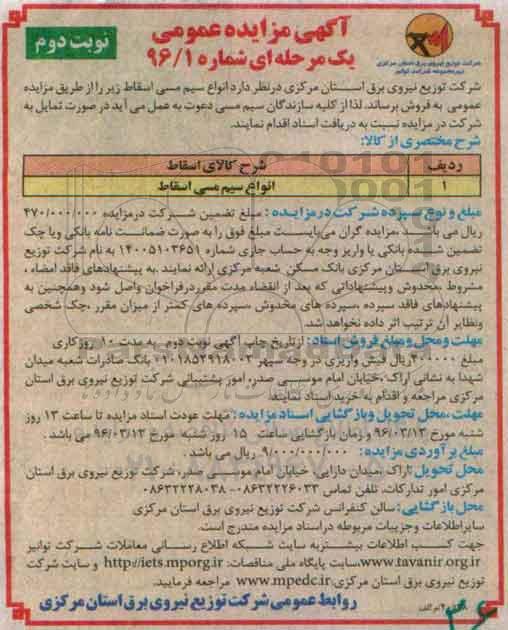 آگهی مزایده عمومی
یک مرحله ای شماره ۹۶/۱
نوبت دوم
شرکت توزیع نیروی برق استان مرکزی
شرکت توزیع نیروی برق استان مرکزی درنظر دارد انواع سیم مسی اسقاط زیر را از طریق مزایده
عمومی به فروش برساند. لذا از کلیه سازندگان سیم مسی دعوت به عمل می آید در صورت تمایل به
شرکت در مزایده نسبت به دریافت اسناد اقدام نمایند.
شرح مختصری از کالا:
ردیف شرح کالای اسقاط
۱ انواع سیم مسی اسقاط
مبلغ و نوع سپرده شرکت درمزایده : مبلغ تضمین شرکت درمزایده ۴۷۰/۰۰۰/۰۰۰
ریال می باشد .مزایده گران می‌بایست مبلغ فوق را به صورت ضمانت نامه بانکی ویا چک
تضمین شده بانکی یا واریز وجه به حساب جاری شماره ۱۴۰۰۵۱۰۳۶۵۱ به نام شرکت توزیع
نیروی برق استان مرکزی بانک مسکن شعبه مرکزی ارائه نمایند .به پیشنهادهای فاقد امضاء ،
مشروط ،مخدوش وپیشنهاداتی که بعد از انقضاء مدت مقرردرفراخوان واصل شود وهمچنین به
پیشنهادهای فاقد سپرده ،سپرده های مخدوش ،سپرده های کمتر از میزان مقرر ،چک شخصی
ونظایر آن ترتیب اثر داده نخواهد شد.
مهلت ومحل ومبلغ فروش اسناد: ازتاریخ چاپ آگهی نوبت دوم به مدت ۱۰ روزکاری
مبلغ ۴۰۰/۰۰۰ریال فیش واریزی در وجه سپهر ۰۱۰۱۸۵۲۹۱۸۰۰۳ بانک صادرات شعبه میدان
شهدا به نشانی اراک،خیابان امام موسی صدر، امور پشتیبانی شرکت توزیع نیروی برق استان
مرکزی مراجعه و اقدام به خرید اسناد نمایند.
مهلت،محل تحویل وبازگشایی اسناد مزایده: مهلت عودت اسناد مزایده تا ساعت ۱۳ روز
شنبه مورخ ۹۶/۰۳/۱۳ و زمان بازگشایی ساعت ۱۵ روز شنبه مورخ ۹۶/۰۳/۱۳ می باشد .
مبلغ برآوردی مزایده: ۹/۰۰۰/۰۰۰/۰۰۰ ریال می باشد .
محل تحویل:اراک ،میدان دارایی، خیابان امام موسی صدر، شرکت توزیع نیروی برق استان
مرکزی امور تدارکات، تلفن تماس ۰۸۶۳۲۲۲۶۰۳۳- ۰۸۶۳۲۲۲۸۰۳۸
محل بازگشایی: سالن کنفرانس شرکت توزیع نیروی برق استان مرکزی
سایراطلاعات وجزییات مربوطه دراسناد مزایده مندرج است.
جهت کسب اطلاعات بیشتربه سایت شبکه اطلاع رسانی معاملات شرکت توانیر
www.tavanir.org.ir، سایت پایگاه ملی مناقصات: http://iets.mporg.ir و سایت شرکت
توزیع نیروی برق استان مرکزی،www.mpedc.ir مراجعه فرمایید.
روابط عمومی شرکت توزیع نیروی برق استان مرکزی
۳۶